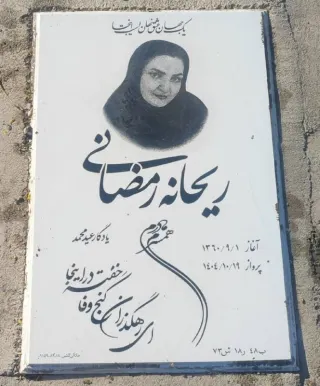 یک جهان عشق نهان است اینجا
ریحانه رمضانی
همسرم مادرم
یادگار عیدمحمد
آغاز ۱۳۶۰/۹/۱
پرواز ۱۴۰۴/۱۰/۱۹
ای رهگذران گنج وفا
خفته در اینجا
ب۴۸ ر۱۸ ش۷۳